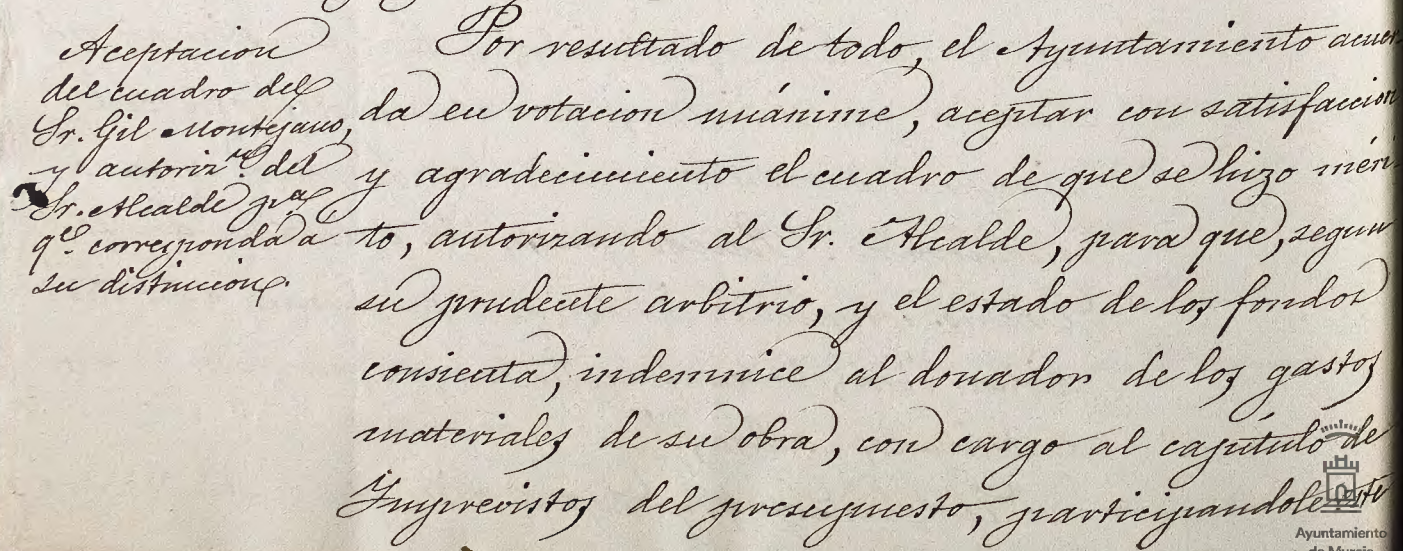 Aceptacion
del cuadro del
Sr. Gil Montejano,
y autoriz.ⁿ del
Sr. Alcalde p.ª
q.e corresponda a
su distincion.
Por resultado de todo, el Ayuntamiento acuer-
da en votacion unánime, aceptar con satisfaccion
y agradecimiento el cuadro de que se hizo méri-
to, autorizando al Sr. Alcalde, para que, segun
su prudente arbitrio, y el estado de los fondos
consienta, indemnice al donador de los gastos
materiales de su obra, con cargo al capítulo de
Imprevistos del presupuesto, participandole
Ayuntamiento
de Murcia